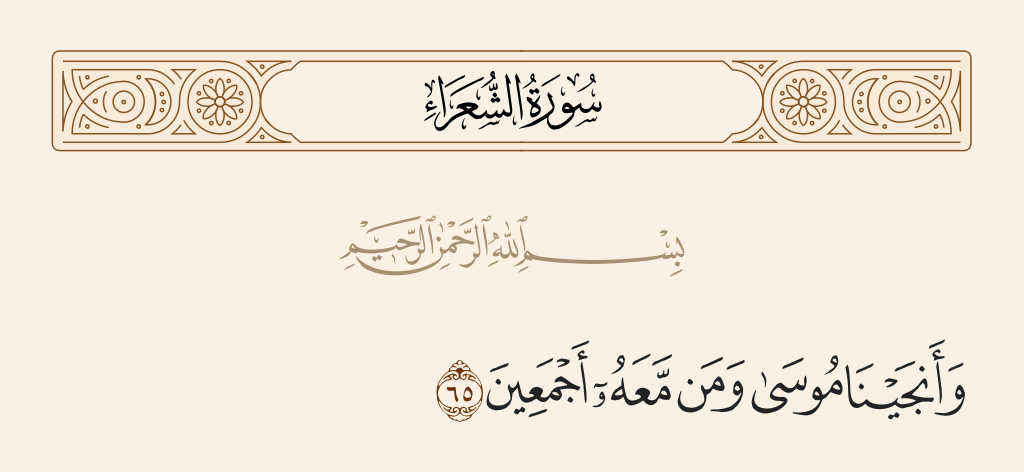 سُورَةُ الشُّعَرَاءِ
بِسْمِ ٱللَّهِ ٱلرَّحْمَٰنِ ٱلرَّحِيمِ
وَأَنجَيْنَا مُوسَىٰ وَمَن مَّعَهُۥٓ أَجْمَعِينَ ٦٥